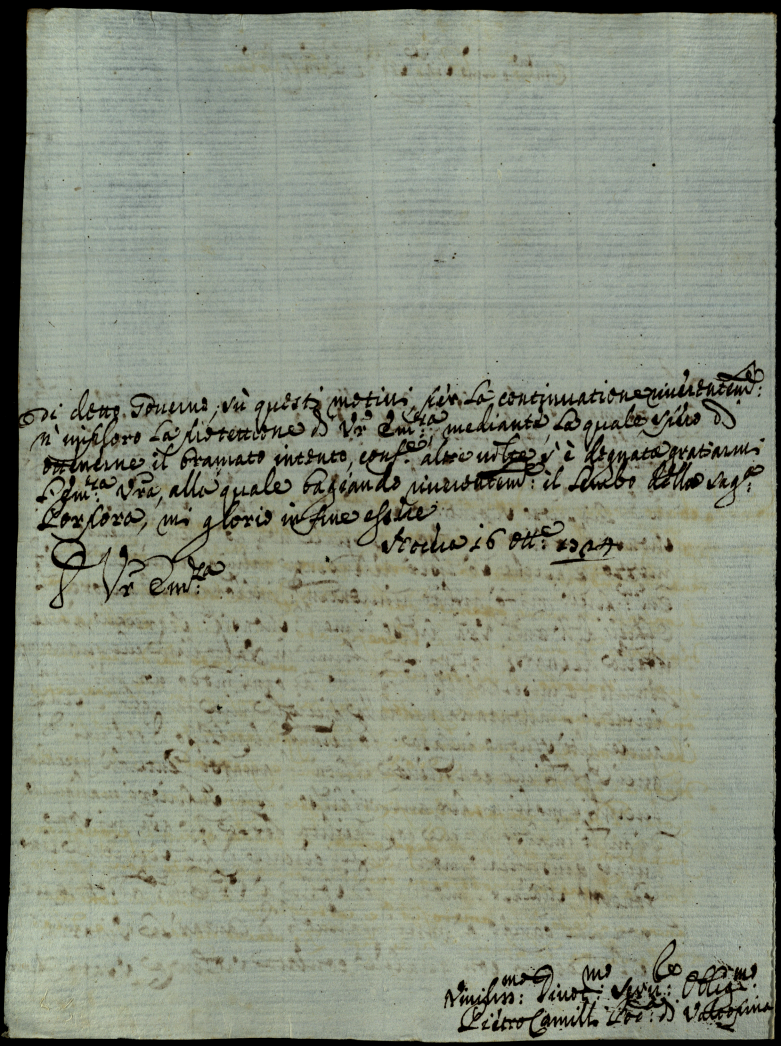 Di detto Governo, sù questi motivi per la continuatione riverentem.e:
n'imploro la protettione di Vr̃ Em.za, mediante la quale spero di
ottenerne il bramato intento, conf.e altre volte s'è degnata gratiarmi
l'Em.za Vrã, alla quale bagiando riverentem.e: il lembo della sag.a
Porpora, mi glorio in fine essere
16 Ott.e 1714
D Vr̃ Em.za
Divot.mo: Serv.: Oblig.mo
Pietro Camilli Pod.à di